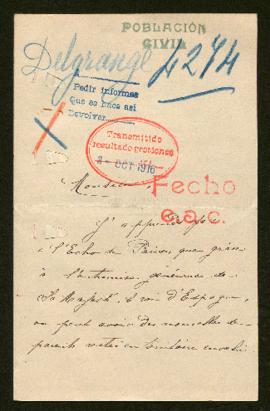 POBLACIÓN
CIVIL
Delgrange 4274
Pedir informes
Que se hace así
Devolver
Transmitido
resultado gestiones
2 - OCT 1916
Monsieur,
Fecho
e.a.c.
J'apprends par
l'Echo de Paris, que grâce
à l'entremise généreuse de
Sa Majesté, le roi d'Espagne,
on peut avoir des nouvelles de
parents restés en territoire envahi.